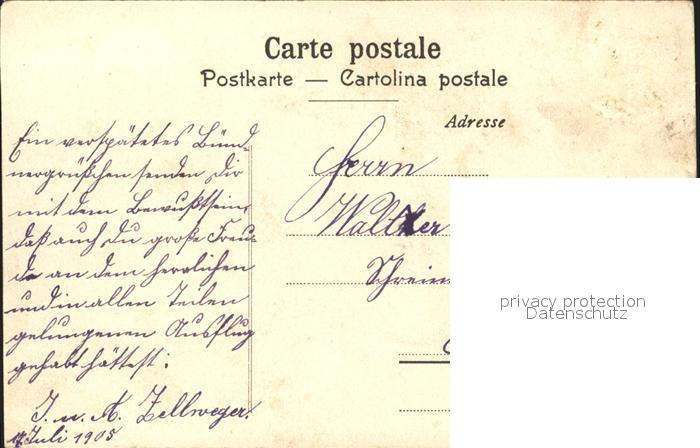 Carte postale
Postkarte — Cartolina postale
Adresse
Ein verspätetes Bünd-
nergrüßchen senden Dir
mit dem Bewußtsein,
daß auch Du große Freu-
de an dem herrlichen
und in allen Teilen
gelungenen Ausflug
gehabt hättest:
J. u. A. Zellweger.
Juli 1905
Herrn
Walther
Schrein
privacy protection
Datenschutz